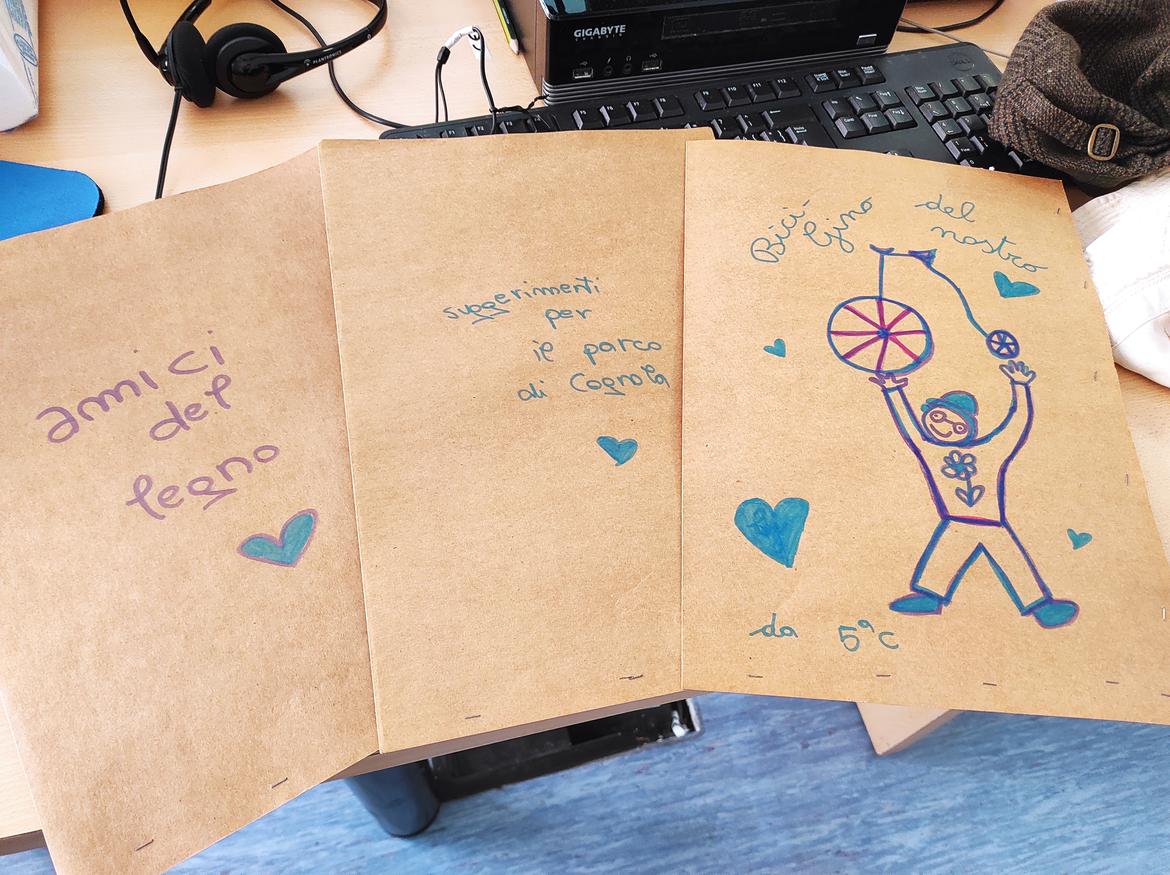 GIGABYTE
PLANTRONICS
amici
del
legno
suggerimenti
per
il parco
di Cognola
Bici-
lino
del
nostro
da 5ªC